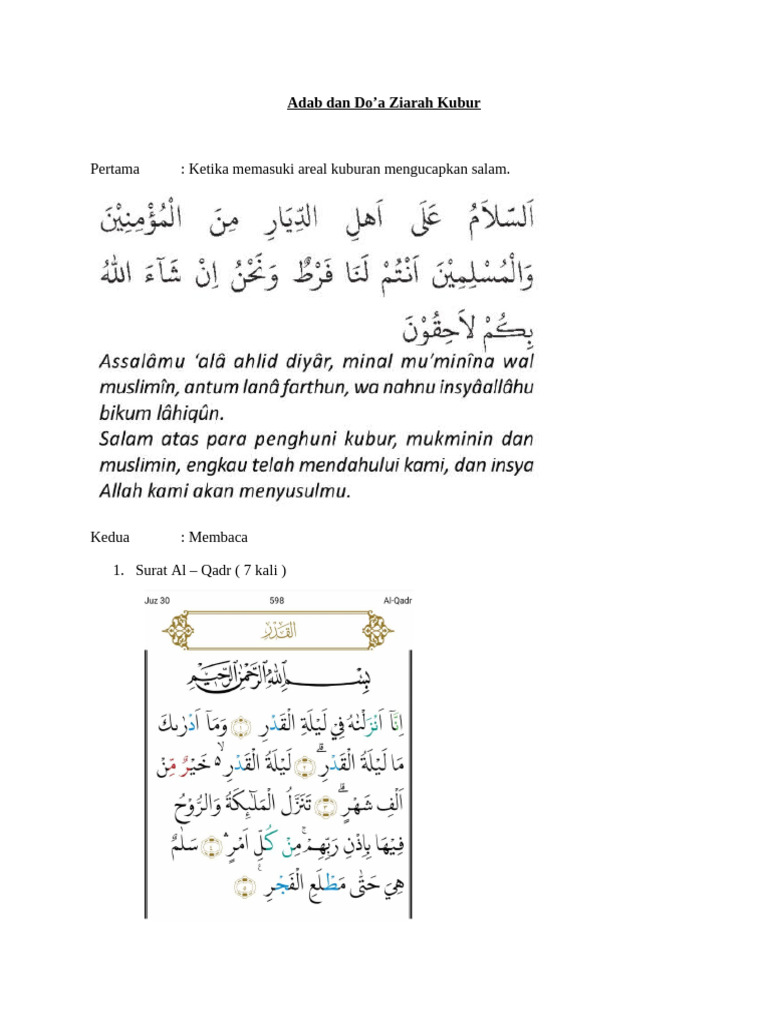 Adab dan Do’a Ziarah Kubur
Pertama : Ketika memasuki areal kuburan mengucapkan salam.
اَلسّلَامُ عَلَى اَهلِ الدِّيَارِ مِنَ الْمُؤْمِنِيْنَ
وَالْمُسْلِمِيْنَ اَنْتُمْ لَنَا فَرْطٌ وَنَحْنُ اِنْ شَآءَ اللهُ
بِكُمْ لَاحِقُوْنَ
Assalâmu ‘alâ ahlid diyâr, minal mu’minîna wal
muslimîn, antum lanâ farthun, wa nahnu insyâallâhu
bikum lâhiqûn.
Salam atas para penghuni kubur, mukminin dan
muslimin, engkau telah mendahului kami, dan insya
Allah kami akan menyusulmu.
Kedua : Membaca
1. Surat Al – Qadr ( 7 kali )
Juz 30 598 Al-Qadr
القَدْر
بِسْمِ اللهِ الرَّحْمٰنِ الرَّحِيْمِ
اِنَّآ اَنْزَلْنٰهُ فِيْ لَيْلَةِ الْقَدْرِ ١ وَمَآ اَدْرٰىكَ
مَا لَيْلَةُ الْقَدْرِۗ ٢ لَيْلَةُ الْقَدْرِ ەۙ خَيْرٌ مِّنْ
اَلْفِ شَهْرٍۗ ٣ تَنَزَّلُ الْمَلٰۤىِٕكَةُ وَالرُّوْحُ
فِيْهَا بِاِذْنِ رَبِّهِمْۚ مِنْ كُلِّ اَمْرٍۛ ٤ سَلٰمٌ
هِيَ حَتّٰى مَطْلَعِ الْفَجْرِ ࣖ ٥